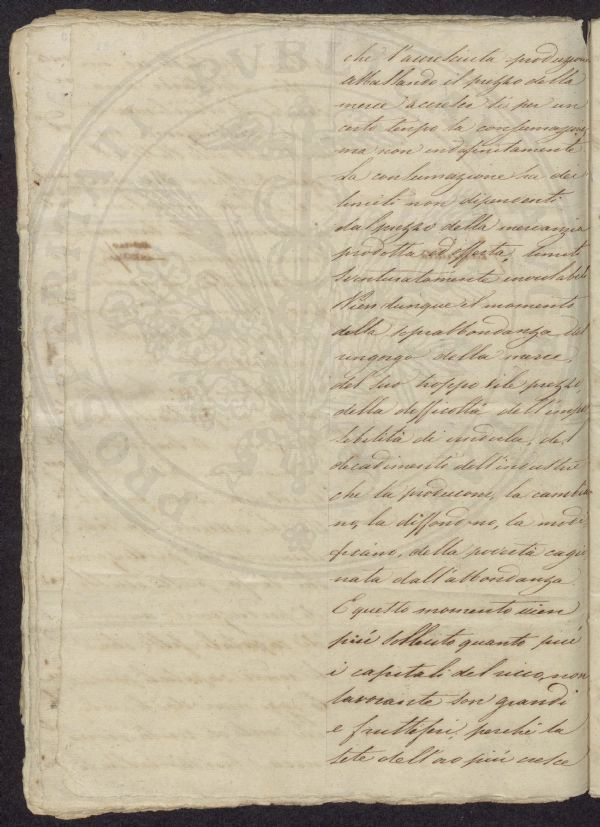 che l'accresciuta produzione
abballando il prezzo della
merce accresce si per un
certo tempo la consumazione,
ma non indefinitamente
La consumazione ha dei
limiti non dipendenti
dal prezzo della mercanzia
prodotta ed offerta, limiti
sventuratamente inevitabili
Vien dunque il momento
della soprabbondanza del
ringorgo della merce,
del suo troppo vile prezzo,
della difficoltà dell'impos
sibilità di venderla, del
decadimento dell'industrie
che la producono, la cambia
no, la diffondono, la modi
ficano, della povertà cagio
nata dall'abbondanza
E questo momento vien
più sollecito quanto più
i capitali del ricco non
lavorante son grandi
e fruttiferi, perchè la
sete dell'oro più cresce
PROSPERITATI PVBLI